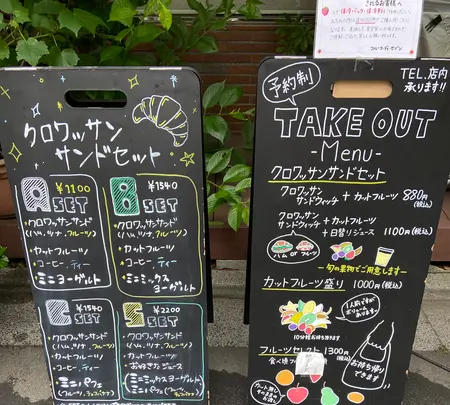 クロワッサン
サンドセット
A SET
¥1100
クロワッサンサンド
(ハム,ツナ,フルーツ)
カットフルーツ
コーヒー,ティー
ミニヨーグルト
B SET
¥1540
クロワッサンサンド
(ハム,ツナ,フルーツ)
カットフルーツ
コーヒー・ティー
ミニミックス
ヨーグルト
C SET
¥1540
クロワッサンサンド
(ハム,ツナ,フルーツ)
カットフルーツ
コーヒー・ティー
ミニパフェ
S SET
¥2200
クロワッサンサンド
(ハム,ツナ,フルーツ)
カットフルーツ
お好きなジュース
ミニミックスヨーグルト
予約制
TEL.店内
承ります!!
TAKE OUT
-Menu-
クロワッサンサンドセット
クロワッサン
サンドウィッチ + カットフルーツ 880円
(税込)
クロワッサン
サンドウィッチ + カットフルーツ
+ 日替りジュース 1100円(税込)
ハム or フルーツ
旬の果物でご用意します
カットフルーツ盛り 1000円(税込)
1人前ですが
ボリューム
あります。
10分程お待ち頂きます
フルーツセレクト 1300円
(税込)
お持ち帰り
できます